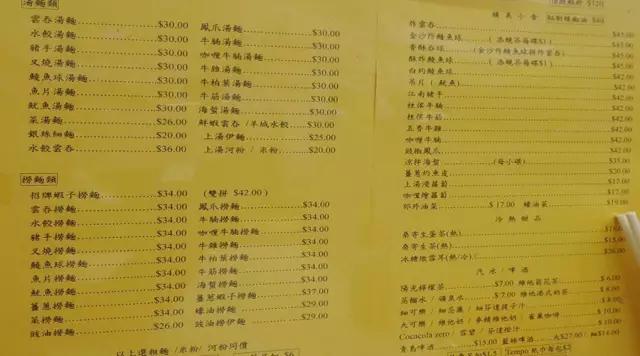 湯麵類
雲吞湯麵 $30.00
水餃湯麵 $30.00
豬手湯麵 $30.00
叉燒湯麵 $30.00
鯪魚球湯麵 $30.00
魚片湯麵 $30.00
魷魚湯麵 $30.00
菜湯麵 $26.00
銀絲細麵 $20.00
水餃雲吞 $36.00
鳳爪湯麵 $30.00
牛腩湯麵 $30.00
咖喱牛腩湯麵 $30.00
牛雜湯麵 $30.00
牛柏葉湯麵 $30.00
牛筋湯麵 $30.00
海蜇湯麵 $30.00
鮮蝦雲吞/羊城水餃 $30.00
上湯伊麵 $25.00
上湯河粉/米粉 $20.00
撈麵類
招牌蝦子撈麵 $34.00 (雙拼 $42.00)
雲吞撈麵 $34.00
水餃撈麵 $34.00
豬手撈麵 $34.00
叉燒撈麵 $34.00
鯪魚球撈麵 $34.00
魚片撈麵 $34.00
魷魚撈麵 $34.00
薑蔥撈麵 $34.00
菜撈麵 $29.00
豉油撈麵 $26.00
鳳爪撈麵 $34.00
牛腩撈麵 $34.00
咖喱牛腩撈麵 $34.00
牛雜撈麵 $34.00
牛柏葉撈麵 $34.00
牛筋撈麵 $34.00
海蜇撈麵 $34.00
薑蔥蝦子撈麵 $37.00
蠔油撈麵 $29.00
豉油撈伊麵 $29.00
以上選粗麵/米粉/河粉同價
精美小食
炸雲吞 $45.00
金沙炸鯪魚球 (添幾茗每碟$1) $45.00
香酥吞球 (金沙炸鯪魚球拼炸雲吞) $45.00
酥炸鯪魚球 (添幾茗每碟$1) $45.00
白灼鯪魚球 $42.00
江南豬手 $42.00
柱侯牛腩 $42.00
柱侯牛筋 $42.00
五香牛雜 $42.00
咖喱牛腩 $42.00
豉椒鳳爪 $42.00
涼拌海蜇 (每小碟) $35.00
薑蔥灼魚皮 $20.00
上湯浸蘿蔔 $17.00
咖喱燴蘿蔔 $17.00
郊外油菜 $17.00 蠔油菜 $19.00
冷熱甜品
桑寄生蛋茶(熱)
桑寄生茶(熱) $15.00
冰糖燉雪耳(熱/冷)
汽水/啤酒
陽光檸檬茶 $7.00 維他菊花茶 $6.00
蒸餾水/礦泉水 $7.00 維他港式奶茶 $8.00
Cocacola zero/雪碧/芬達橙汁 $10.00
青島啤酒 $15.00 藍妹啤酒 大$27.00/細$14.00
Tempo